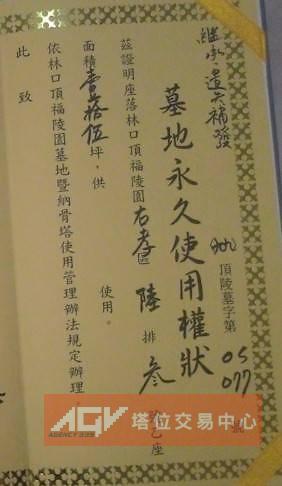 繼承遺失補發
墓地永久使用權狀
頂陵墓字第05077號
茲證明座落林口頂福陵園右孝區陸排參之乙座
面積壹拾伍坪，供使用。
依林口頂福陵園墓地暨納骨塔使用管理辦法規定辦理。
此致
AGV 塔位交易中心